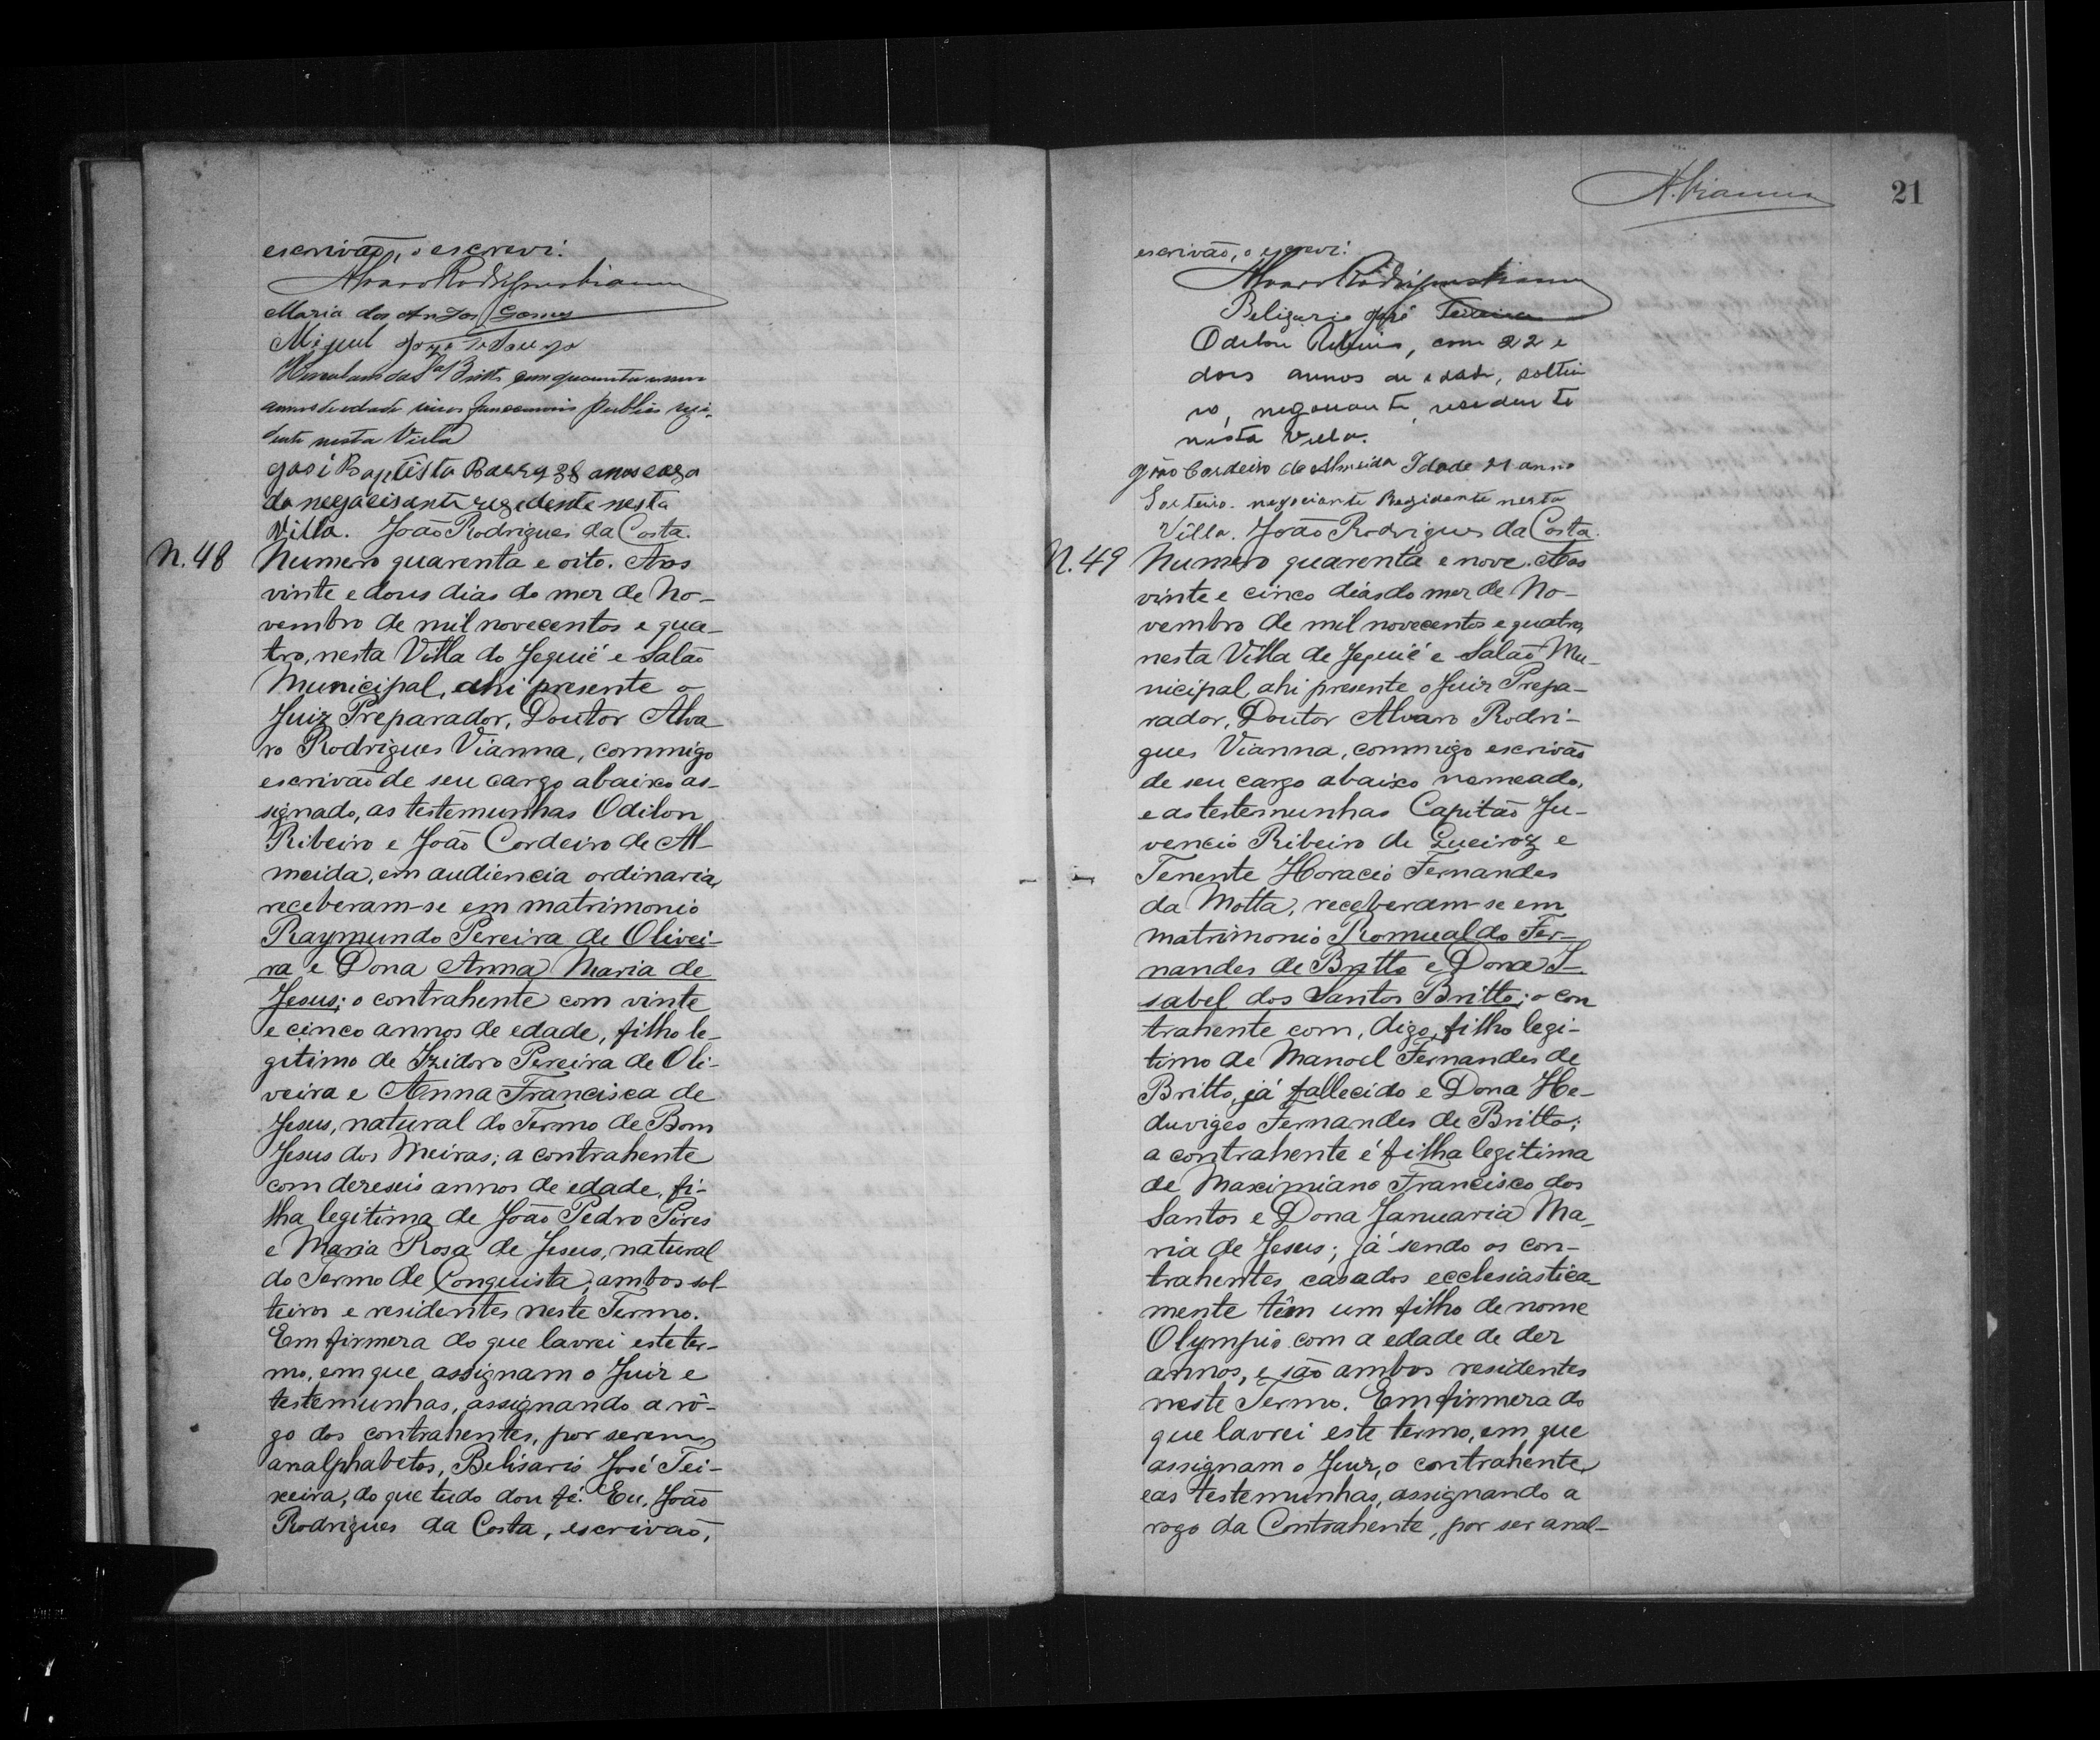 escrivaõ, o escrevi.
Alvaro Rodrigues Vianna
Maria dos Anjos Gomes
Miguel
Britto com quarenta
annos de edade publico resi-
dente nesta Villa
José Baptista 38 anos caza
do negacisante rezedente nesta
Villa. João Rodrigues da Costa.
N. 48 Numero quarenta e oito. Aos
vinte e dous dias do mez de No-
vembro de mil novecentos e qua-
tro, nesta Villa do Jequié e Salaõ
Municipal, ahi presente o
Juiz Preparador, Doutor Alva
ro Rodrigues Vianna, commigo
escrivaõ de seu cargo abaixo as-
signado, as testemunhas Odilon
Ribeiro e João Cordeiro de Al-
meida, em audiencia ordinaria,
receberam-se em matrimonio
Raymundo Pereira de Olivei-
ra e Dona Anna Maria de
Jesus; o contrahente com vinte
e cinco annos de edade, filho le-
gitimo de Izidoro Pereira de Oli-
veira e Anna Francisca de
Jesus, natural do Termo de Bom
Jesus dos Meiras; a contrahente
com dezeseis annos de edade, fi-
lha legitima de João Pedro Pires
e Maria Rosa de Jesus, natural
do Termo de Conquista, ambos sol-
teiros e residentes neste Termo.
Em firmeza do que lavrei este ter-
mo, em que assignam o Juiz e
testemunhas, assignando a rô-
go dos contrahentes, por serem
analphabetos, Belisario José Tei-
xeira, do que tudo dou fé. Eu, João
Rodrigues da Costa, escrivaõ,
A. Vianna
21
escrivaõ, o escrevi.
Alvaro Rodrigues Vianna
Belizario José Teixeira
Odilon Ribeiro, com 22 e
dois annos de edade, soltei
ro, negociante, residente
nesta villa.
João Cordeiro de Almeida Idade 21 anno
Solteiro. negociante Rezidente nesta
Villa. João Rodrigues da Costa.
N. 49 Numero quarenta e nove. Aos
vinte e cinco dias do mez de No-
vembro de mil novecentos e quatro,
nesta Villa de Jequié e Salaõ Mu-
nicipal, ahi presente o Juiz Prepa-
rador, Doutor Alvaro Rodri-
gues Vianna, commigo escrivaõ
de seu cargo abaixo nomeado,
e as testemunhas Capitaõ Ju-
vencio Ribeiro de Queiroz e
Tenente Horacio Fernandes
da Motta, receberam-se em
matrimonio Romualdo Fer-
nandes de Britto e Dona I-
sabel dos Santos Britto; o con
trahente com, digo, filho legi-
timo de Manoel Fernandes de
Britto, já fallecido e Dona He-
duviges Fernandes de Britto;
a contrahente é filha legitima
de Maximiano Francisco dos
Santos e Dona Januaria Ma-
ria de Jesus; já sendo os con-
trahentes casados ecclesiastica-
mente têm um filho de nome
Olympio com a edade de dez
annos, e saõ ambos residentes
neste Termo. Em firmeza do
que lavrei este termo, em que
assignam o Juiz, o contrahente
e as testemunhas, assignando a
rogo da Contrahente, por ser anal-